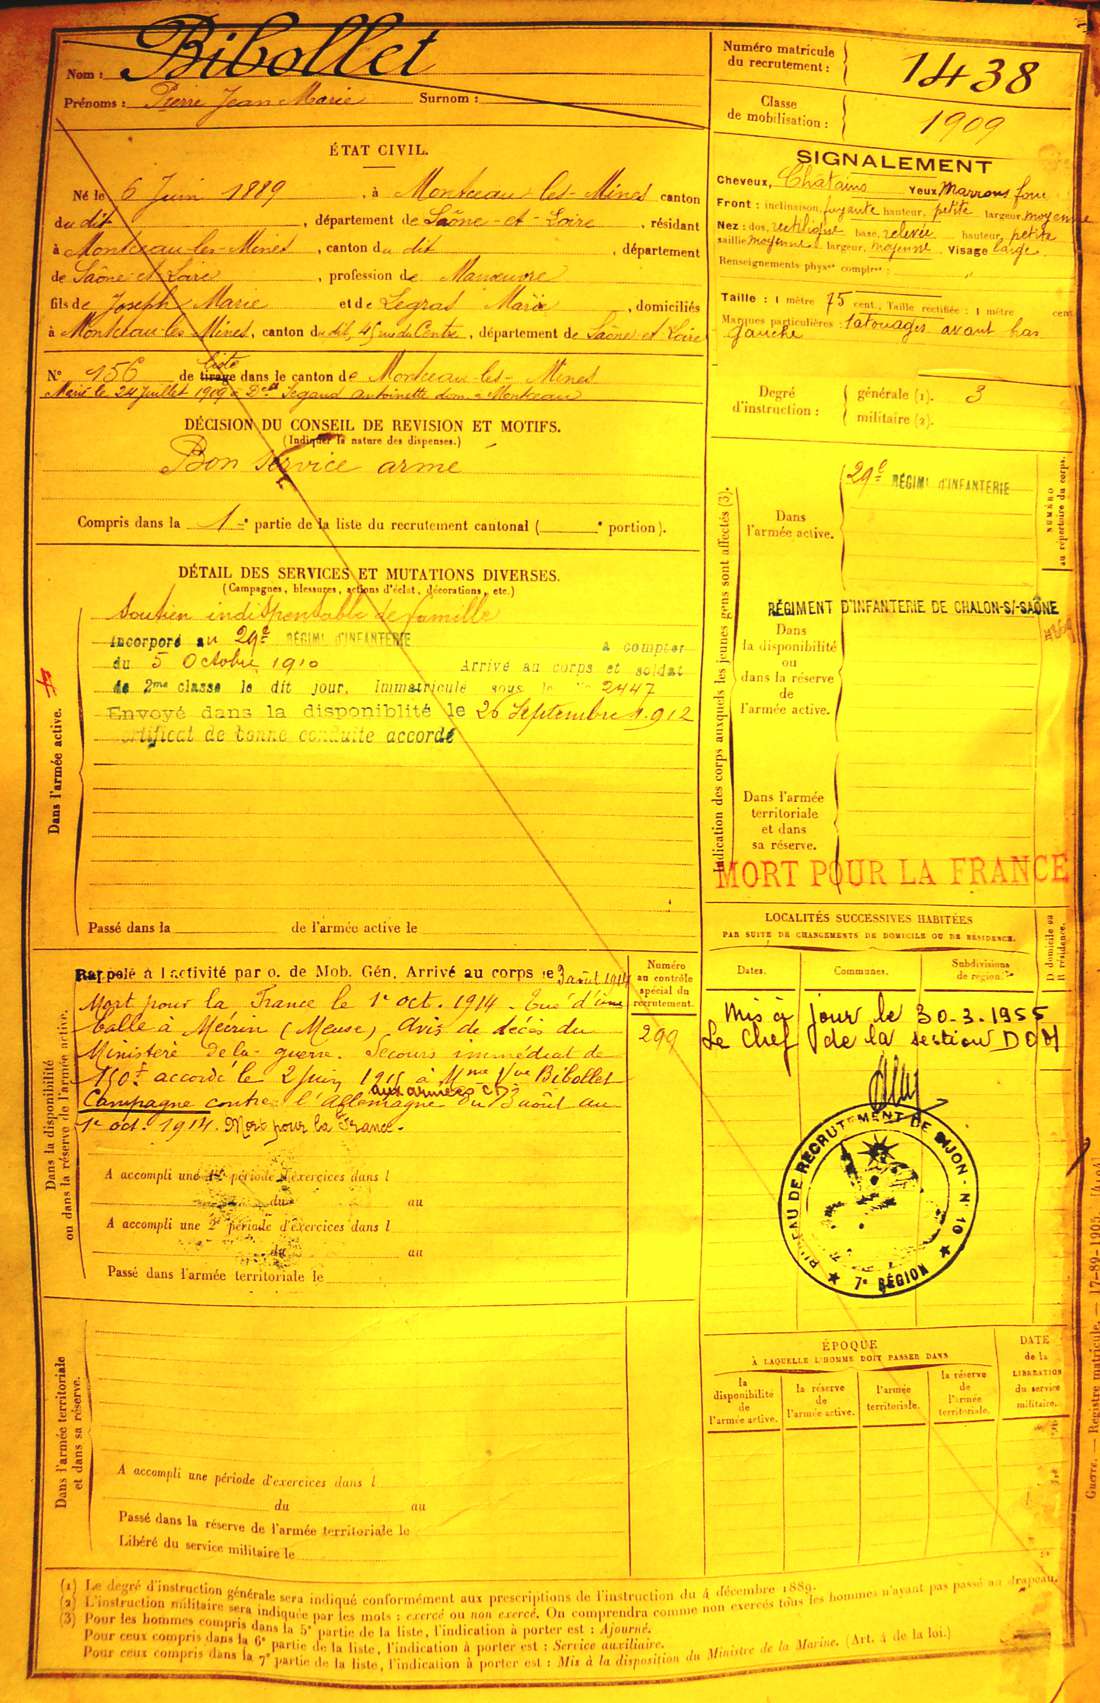 Nom : Bibollet
Prénoms : Pierre Jean Marie Surnom :
Numéro matricule
du recrutement : 1438
Classe
de mobilisation : 1909
ÉTAT CIVIL.
Né le 6 Juin 1889, à Montceau les Mines canton
du dit, département de Saône-et-Loire, résidant
à Montceau les Mines, canton du dit, département
de Saône et Loire, profession de Manœuvre
fils de Joseph Marie et de Legras Marie, domiciliés
à Montceau les Mines, canton du dit, 45 rue du Centre, département de Saône et Loire
N° 156 de liste tirage dans le canton de Montceau-les-Mines
Marié le 24 Juillet 1909 à Antoinette dom. à Montceau
DÉCISION DU CONSEIL DE REVISION ET MOTIFS.
(Indiquer la nature des dispenses.)
Bon service armé
Compris dans la 1re partie de la liste du recrutement cantonal ( e portion).
SIGNALEMENT
Cheveux, Châtains Yeux Marrons foncé
Front : inclinaison, fuyante hauteur, petite largeur, moyenne
Nez : dos, rectiligne base, relevée hauteur, petite
saillie moyenne largeur, moyenne Visage large
Renseignements physes complres :
Taille : 1 mètre 75 cent., Taille rectifiée : 1 mètre cent
Marques particulières : tatouages avant bras
gauche
Degré
d'instruction :
générale (1). 3
militaire (2).
DÉTAIL DES SERVICES ET MUTATIONS DIVERSES.
(Campagnes, blessures, actions d'éclat, décorations, etc.)
Dans l'armée active.
Soutien indispensable de famille
Incorporé au 29e RÉGIMt D'INFANTERIE à compter
du 5 Octobre 1910 Arrivé au corps et soldat
de 2me classe le dit jour. Immatriculé sous le No 2447
Envoyé dans la disponiblité le 26 Septembre 1912
Certificat de bonne conduite accordé
Passé dans la de l'armée active le
Indication des corps auxquels les jeunes gens sont affectés (3).
NUMÉRO
au répertoire du corps.
Dans
l'armée active.
29e RÉGIMt D'INFANTERIE
RÉGIMENT D'INFANTERIE DE CHALON-S/-SAÔNE
Dans
la disponibilité
ou
dans la réserve
de
l'armée active.
Dans l'armée
territoriale
et dans
sa réserve.
MORT POUR LA FRANCE
Dans la disponibilité
ou dans la réserve de l'armée active.
Rappelé à l'activité par o. de Mob. Gén. Arrivé au corps le 3 août 1914
Mort pour la France le 1er oct. 1914. Tué d'une
balle à Mécrin (Meuse). Avis de décès du
Ministère de la guerre. Secours immédiat de
150f accordé le 2 juin 1915 à Mme Vve Bibollet
aux armées
Campagne contre l'Allemagne du 3 août au
1er oct. 1914. Mort pour la France.
A accompli une 1re période d'exercices dans l
du au
A accompli une 2e période d'exercices dans l
du au
Passé dans l'armée territoriale le
Numéro
au contrôle
spécial du
recrutement.
299
LOCALITÉS SUCCESSIVES HABITÉES
PAR SUITE DE CHANGEMENTS DE DOMICILE OU DE RÉSIDENCE.
Dates. Communes. Subdivisions
de région.
D domicile ou
R résidence.
Mis à jour le 30-3-1955
Le Chef de la section DOM
BUREAU DE RECRUTEMENT DE DIJON - N° 10
7e RÉGION
Dans l'armée territoriale
et dans sa réserve.
A accompli une période d'exercices dans l
du au
Passé dans la réserve de l'armée territoriale le
Libéré du service militaire le
ÉPOQUE
À LAQUELLE L'HOMME DOIT PASSER DANS
la
disponibilité
de
l'armée active.
la réserve
de
l'armée active.
l'armée
territoriale.
la réserve
de
l'armée
territoriale.
DATE
de la
LIBÉRATION
du service
militaire.
Guerre. — Registre matricule. — 17-89-1905.
(1) Le degré d'instruction générale sera indiqué conformément aux prescriptions de l'instruction du 4 décembre 1889.
(2) L'instruction militaire sera indiquée par les mots : exercé ou non exercé. On comprendra comme non exercés tous les hommes n'ayant pas passé au drapeau.
(3) Pour les hommes compris dans la 5e partie de la liste, l'indication à porter est : Ajourné.
Pour ceux compris dans la 6e partie de la liste, l'indication à porter est : Service auxiliaire.
Pour ceux compris dans la 7e partie de la liste, l'indication à porter est : Mis à la disposition du Ministre de la Marine. (Art. 4 de la loi.)